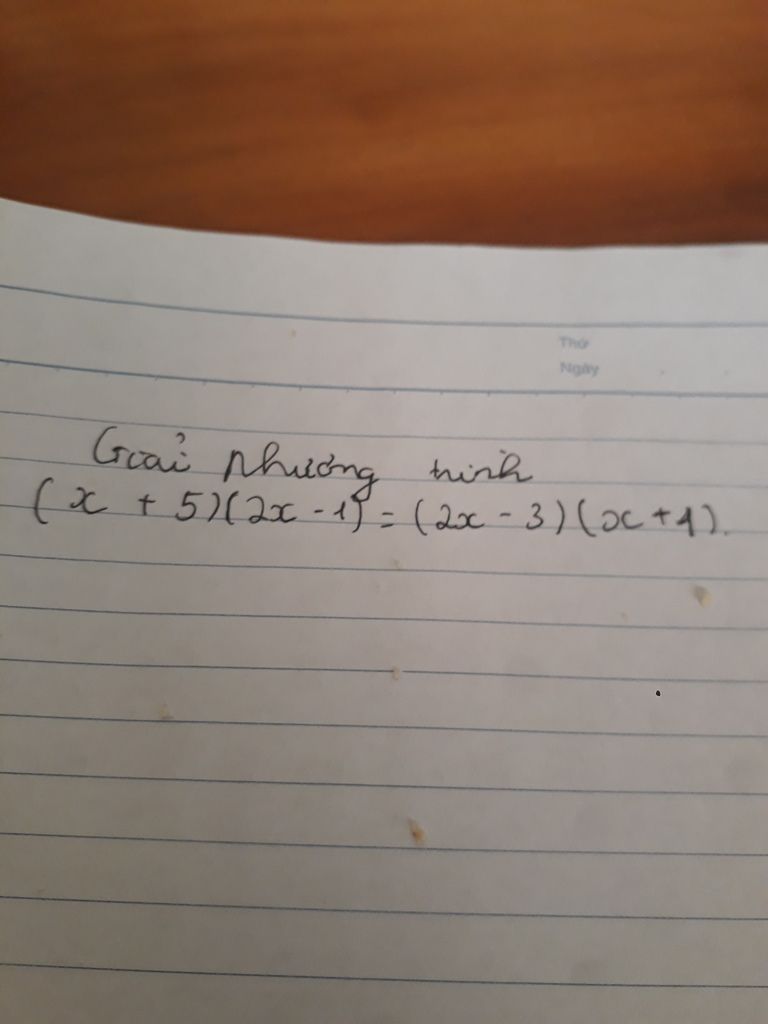 Thứ
Ngày
Giải phương trình
(x + 5)(2x - 1) = (2x - 3)(x + 1).